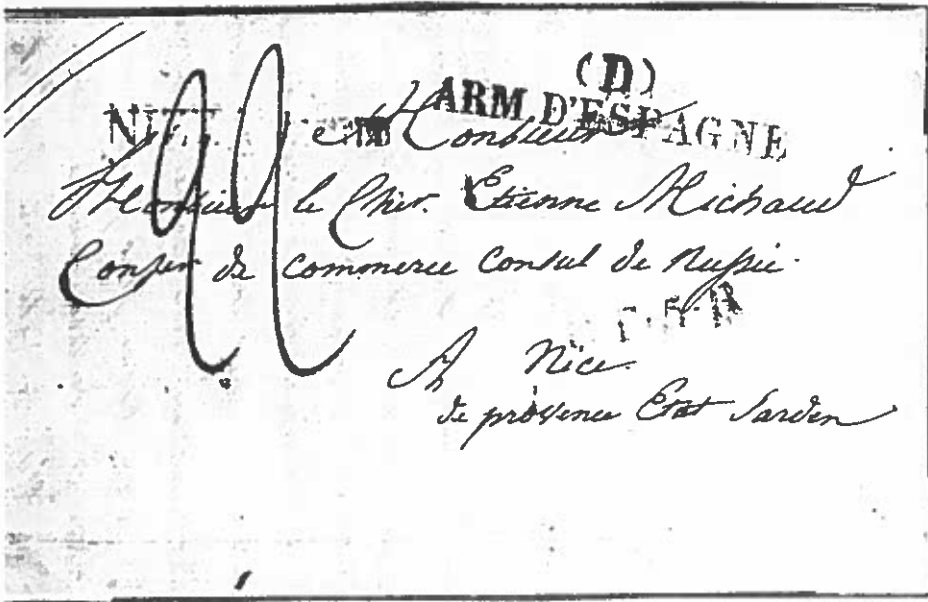 (D)
ARM D'ESPAGNE
A Monsieur
Monsieur le Chev. Etienne Michaud
Conser de commerce Consul de Russie.
A Nice
de provence Etat Sarden